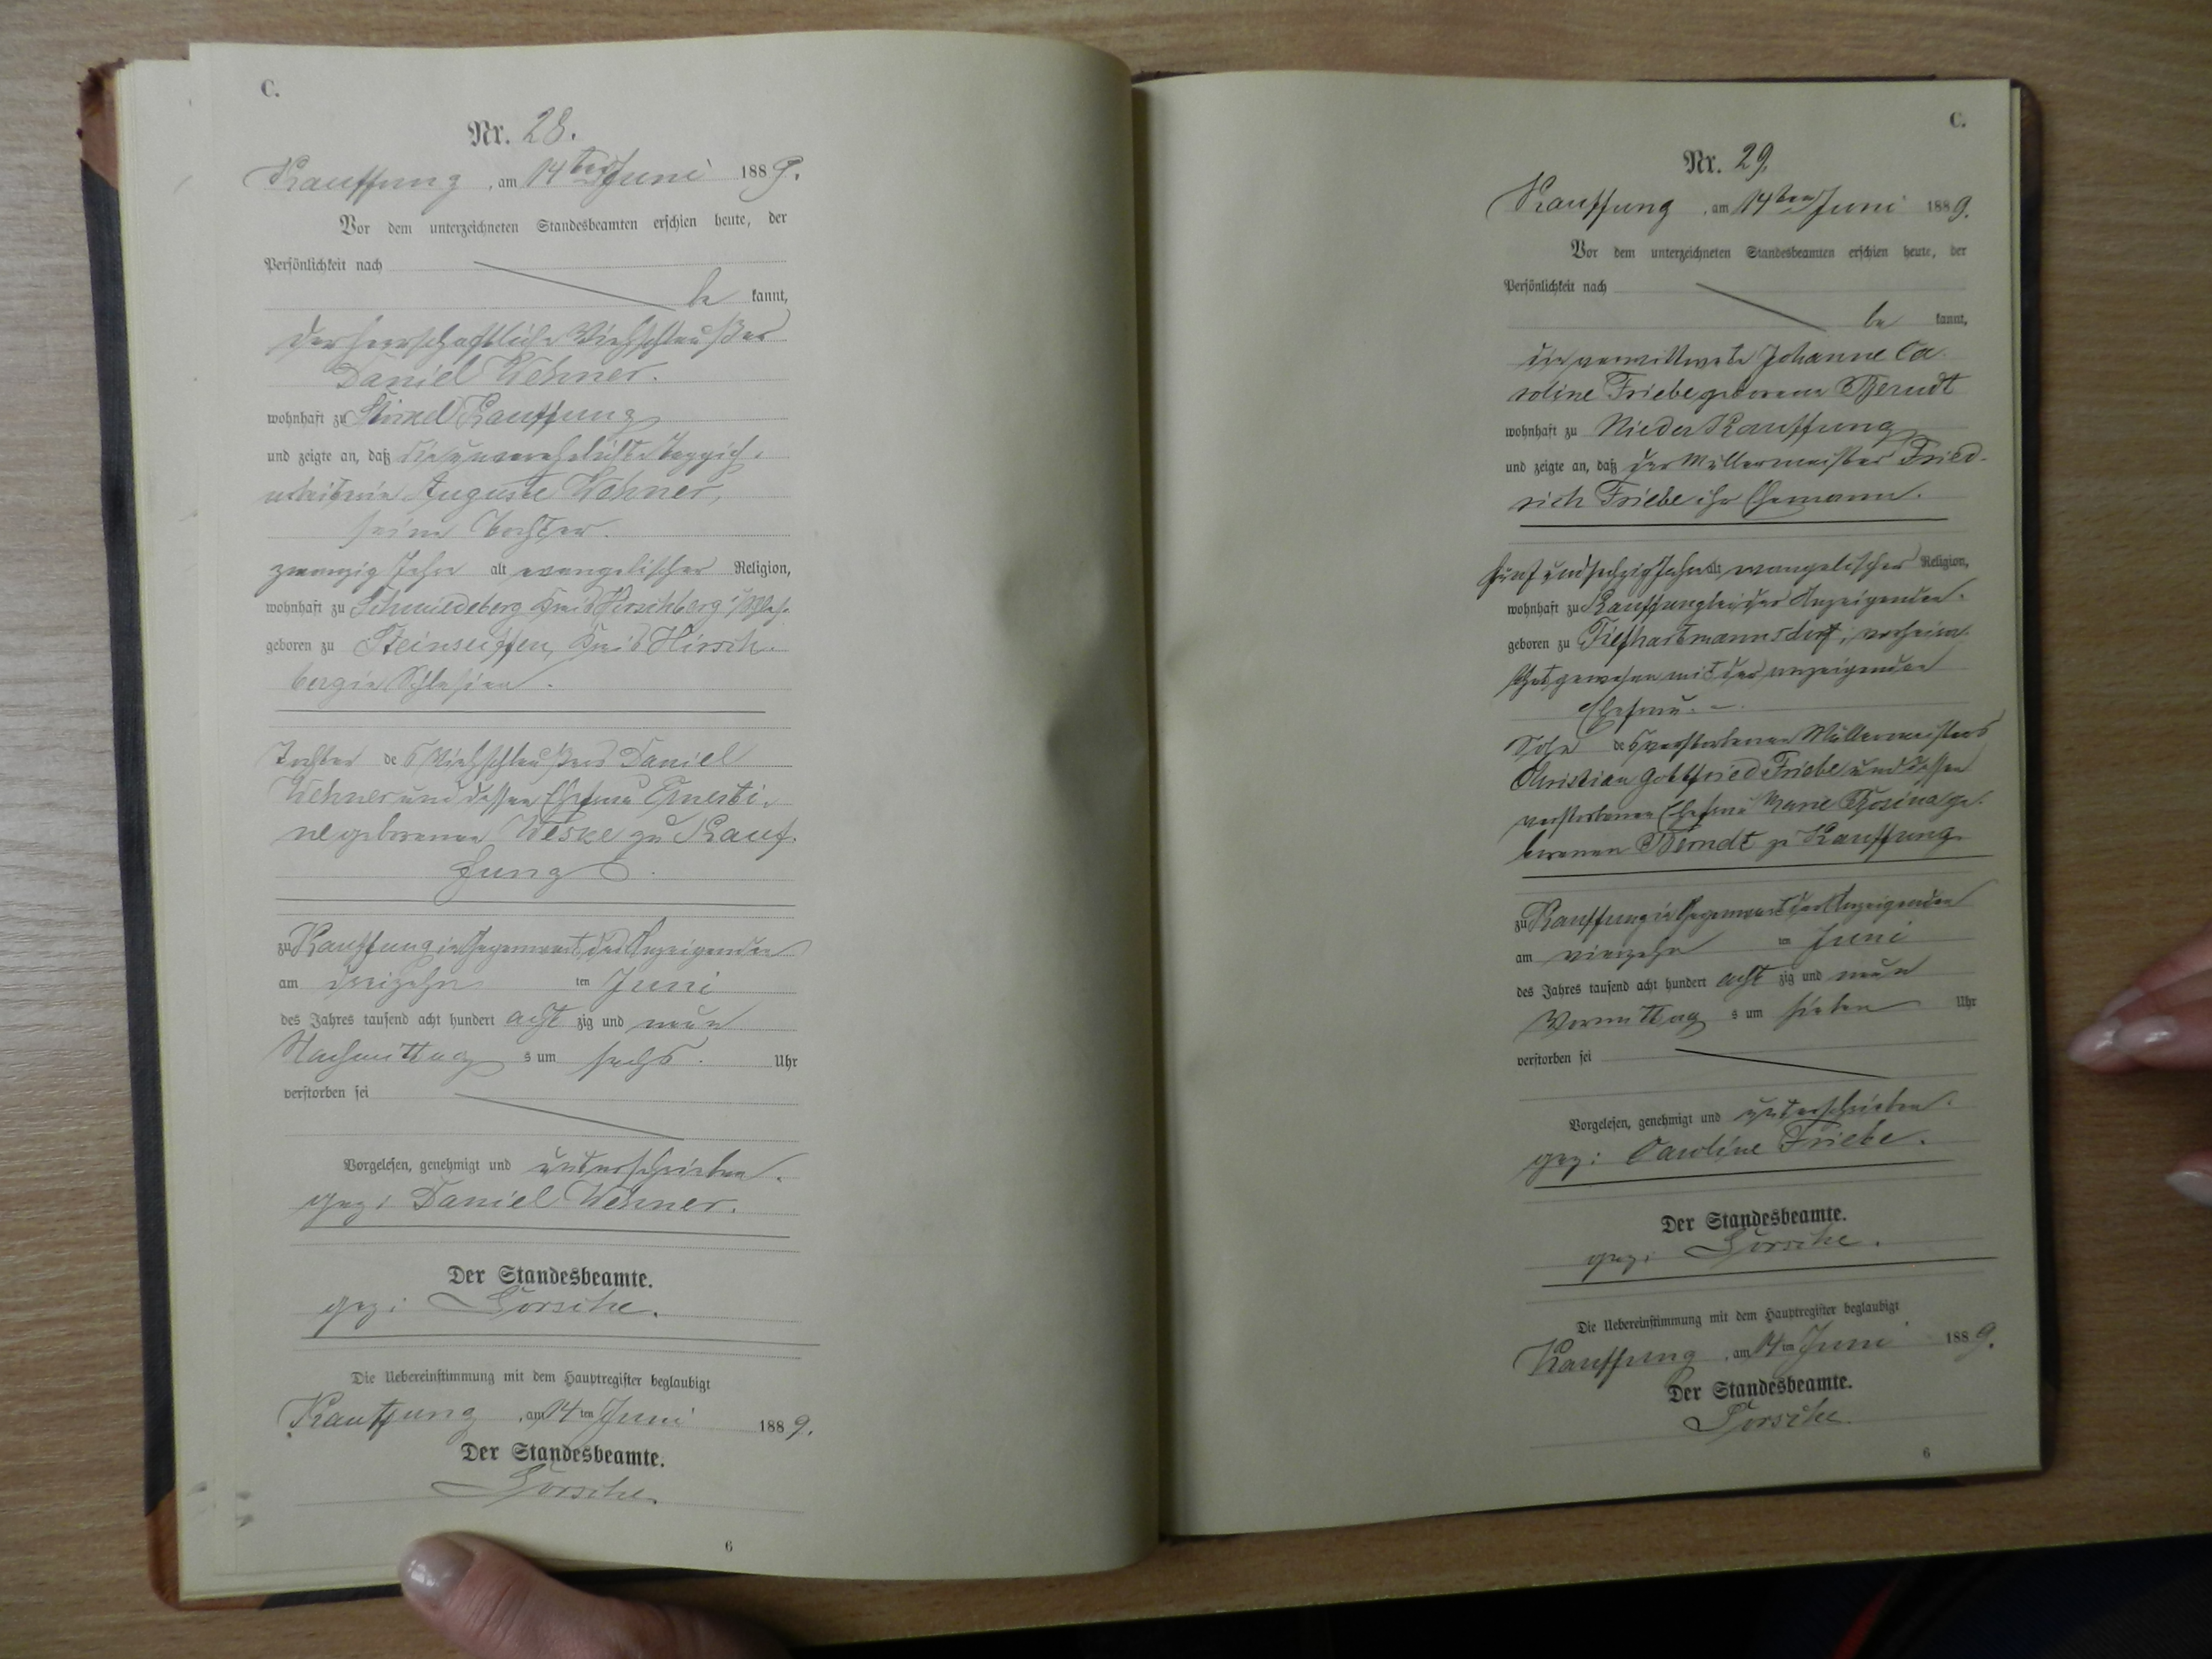 C.
Nr. 28.
Kauffung, am 14ten Juni 1889.
Vor dem unterzeichneten Standesbeamten erschien heute, der
Persönlichkeit nach
be kannt,
der herrschaftliche Viehschleußer
Daniel Wehner.
wohnhaft zu Kauffung
und zeigte an, daß die unverehelichte Teppich-
arbeiterin Auguste Wehner,
seine Tochter.
zwanzig Jahr alt evangelischer Religion,
wohnhaft zu Schmiedeberg Kreis Hirschberg
geboren zu Steinseiffen, Kreis Hirsch-
berg in Schlesien.
Tochter des Viehschleußers Daniel
Wehner und dessen Ehefrau Ernesti-
ne geborenen Weske zu Kauf-
fung
zu Kauffung in Gegenwart des Anzeigenden
am dreizehn ten Juni
des Jahres tausend acht hundert acht zig und neun
Nachmittag s um sechs Uhr
verstorben sei
Vorgelesen, genehmigt und unterschrieben.
gez: Daniel Wehner.
Der Standesbeamte.
gez:
Die Uebereinstimmung mit dem Hauptregister beglaubigt
Kauffung, am 14 ten Juni 1889.
Der Standesbeamte.
6
C.
Nr. 29.
Kauffung, am 14ten Juni 1889.
Vor dem unterzeichneten Standesbeamten erschien heute, der
Persönlichkeit nach
be kannt,
die verwittwete Johanne Ca-
roline Friebe geborene Berndt
wohnhaft zu Nieder Kauffung
und zeigte an, daß der Müllermeister Fried-
rich Friebe ihr Ehemann.
fünf und sechzig Jahr alt, evangelischer Religion,
wohnhaft zu Kauffung bei der Anzeigenden.
geboren zu Tiefhartmannsdorf, verheira-
thet gewesen mit der anzeigenden
Ehefrau.
Sohn des verstorbenen Müllermeisters
Christian Gottfried Friebe und dessen
verstorbenen Ehefrau Marie Rosina ge-
borenen Berndt zu Kauffung
zu Kauffung in Gegenwart der Anzeigenden
am vierzehn ten Juni
des Jahres tausend acht hundert acht zig und neun
Vormittag s um sieben Uhr
verstorben sei
Vorgelesen, genehmigt und unterschrieben.
gez: Caroline Friebe.
Der Standesbeamte.
gez:
Die Uebereinstimmung mit dem Hauptregister beglaubigt
Kauffung, am 14 ten Juni 1889.
Der Standesbeamte.
6